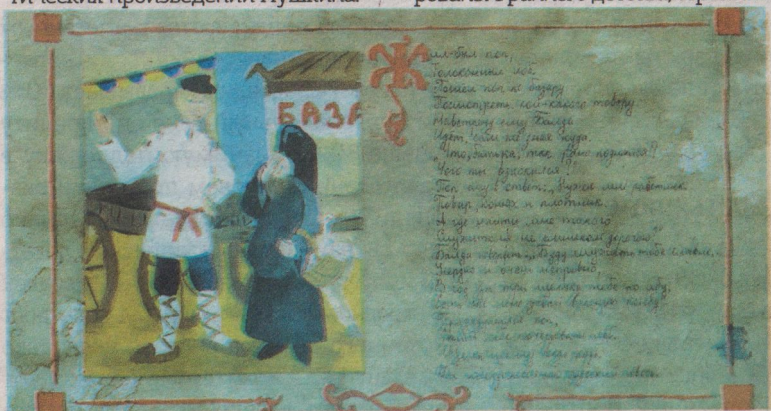 тических произведений Пушкина.
БАЗА
Жил-был поп,
Толоконный лоб.
Пошел поп по базару
Посмотреть кой-какого товару.
Навстречу ему Балда
Идет, сам не зная куда.
„Что, батька, так рано поднялся?
Чего ты взыскался?"
Поп ему в ответ: „Нужен мне работник:
Повар, конюх и плотник.
А где найти мне такого
Служителя не слишком дорогого?"
Балда говорит: „Буду служить тебе славно,
Усердно и очень исправно,
В год за три щелка тебе по лбу,
Есть же мне давай вареную полбу".
Призадумался поп,
Стал себе почесывать лоб.